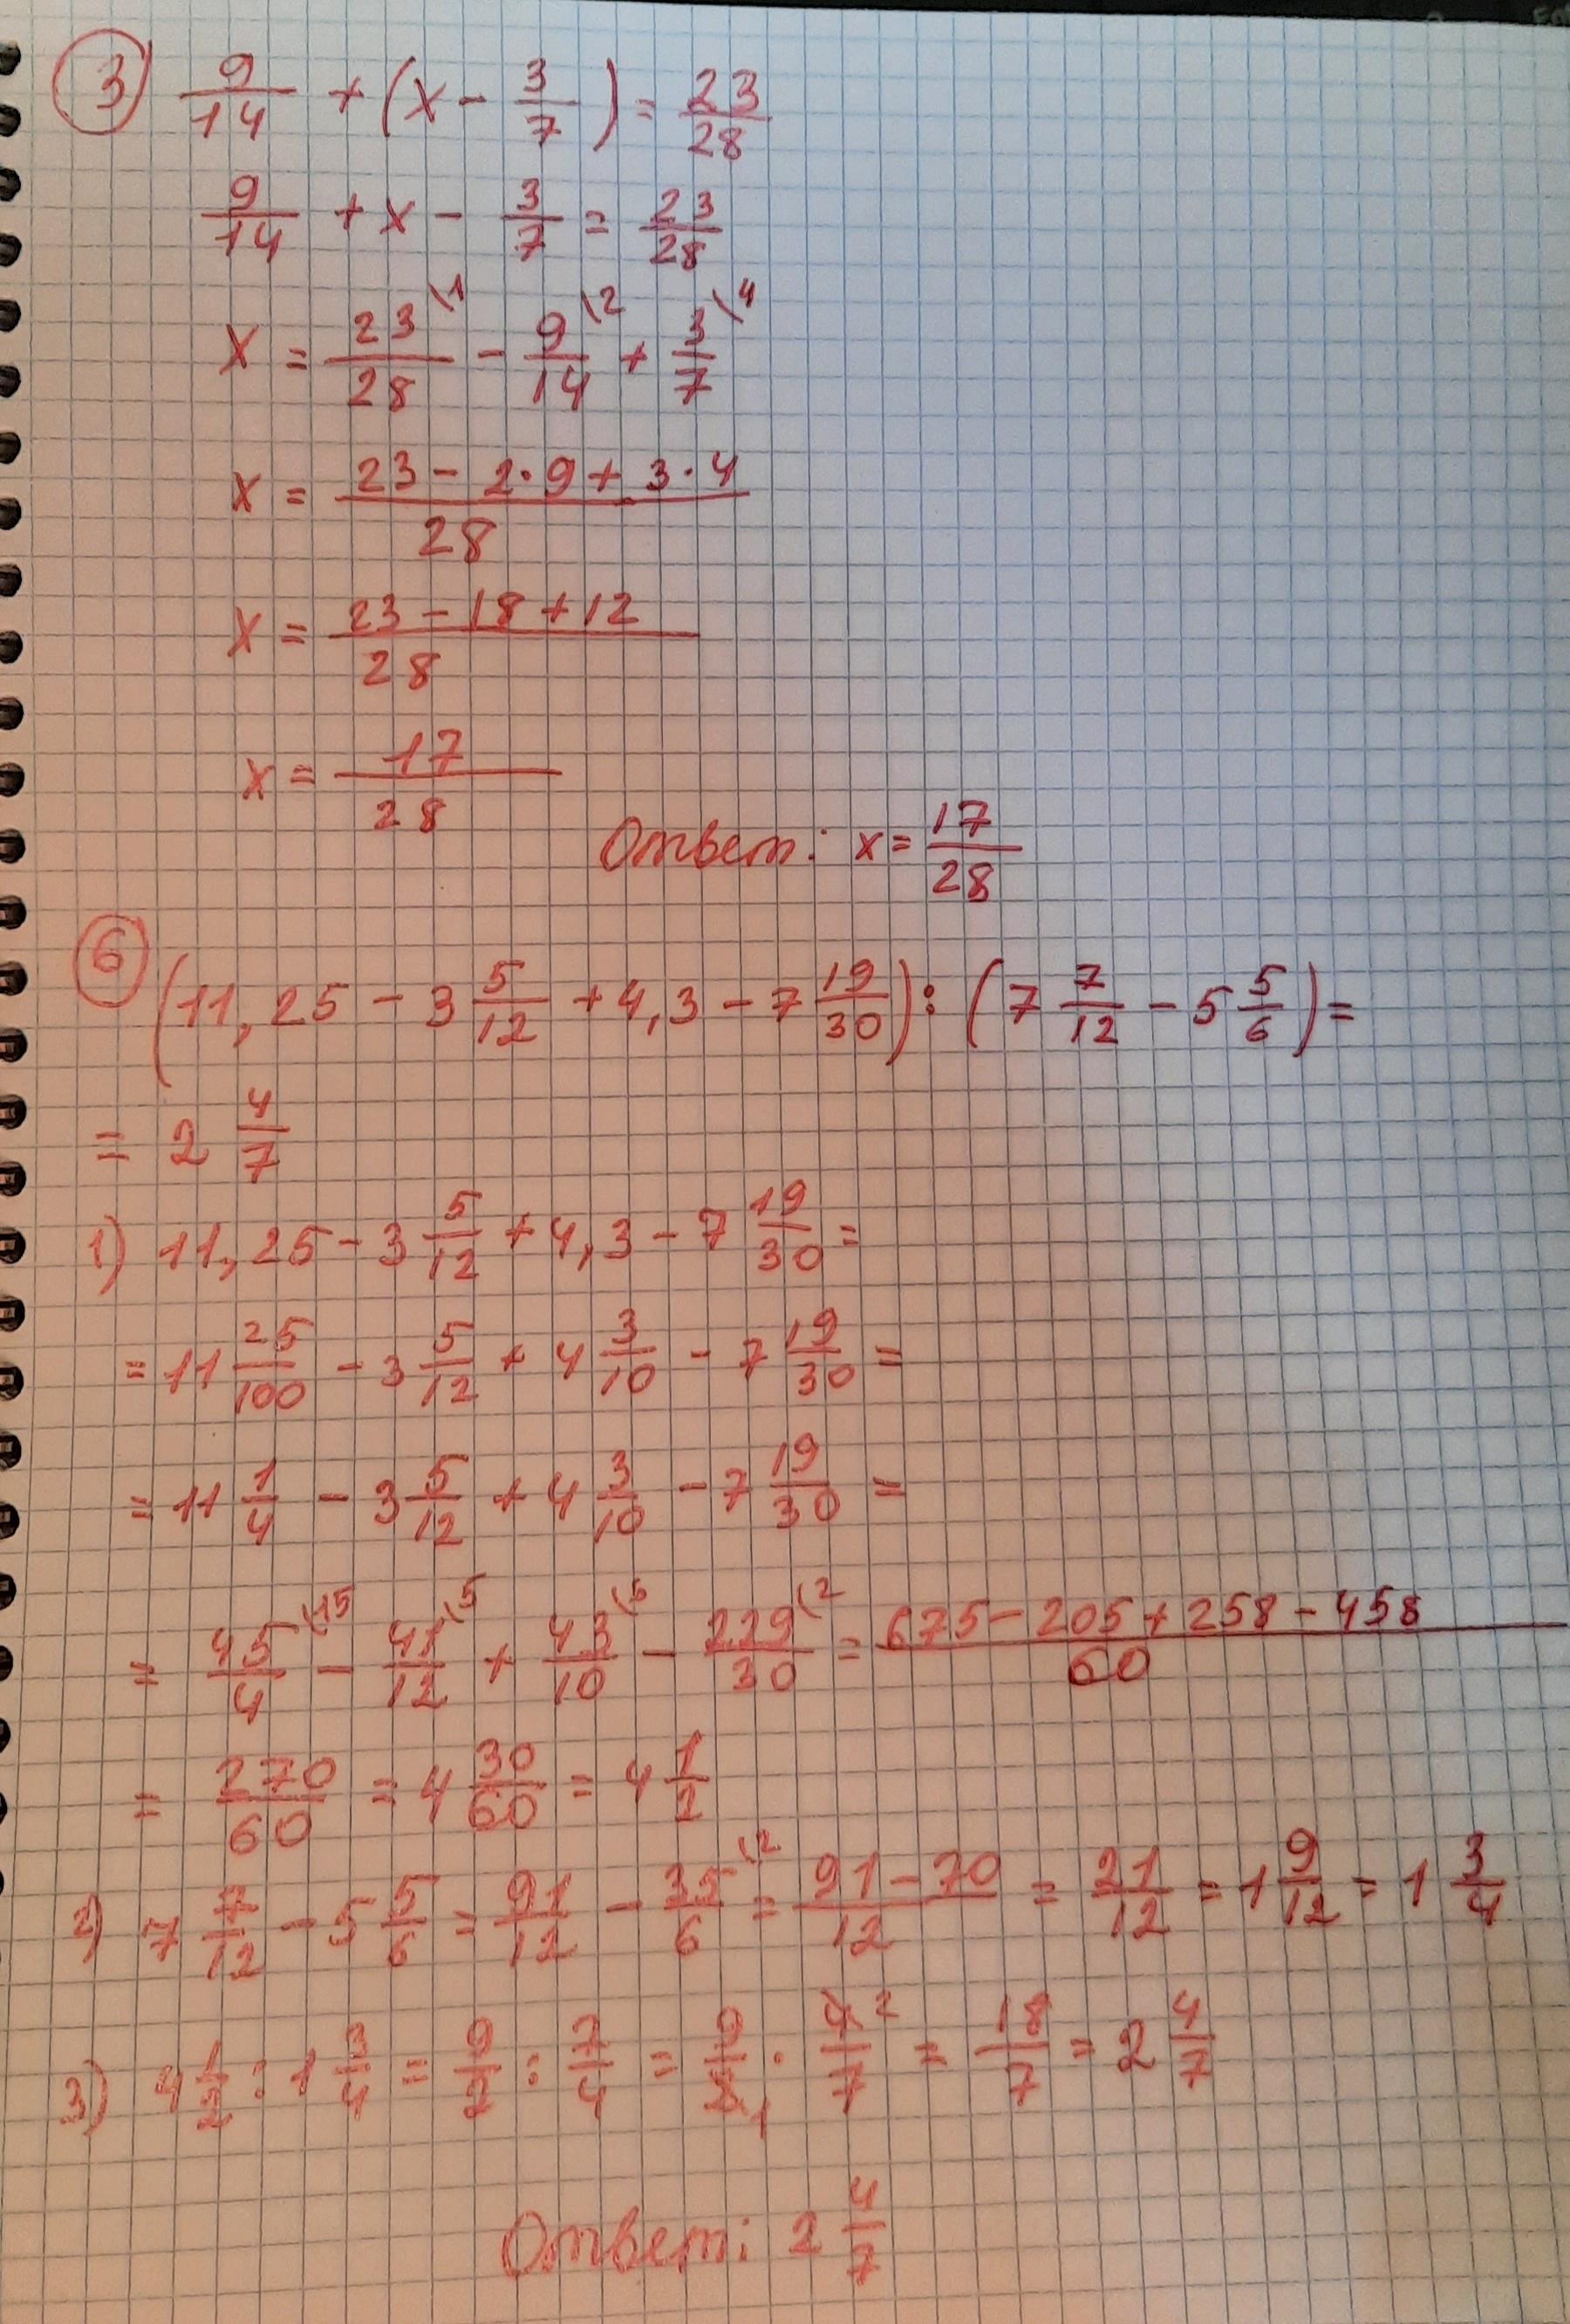 3) 9/14 + (x - 3/7) = 23/28
9/14 + x - 3/7 = 23/28
x = 23/28 \1 - 9/14 \2 + 3/7 \4
x = (23 - 2·9 + 3·4)/28
x = (23 - 18 + 12)/28
x = 17/28
Ответ: x = 17/28
6 (11,25 - 3 5/12 + 4,3 - 7 19/30) : (7 7/12 - 5 5/6) =
= 2 4/7
1) 11,25 - 3 5/12 + 4,3 - 7 19/30 =
= 11 25/100 - 3 5/12 + 4 3/10 - 7 19/30 =
= 11 1/4 - 3 5/12 + 4 3/10 - 7 19/30 =
= 45/4 \15 - 41/12 \5 + 43/10 \6 - 229/30 \2 = (675 - 205 + 258 - 458)/60
= 270/60 = 4 30/60 = 4 1/2
2) 7 7/12 - 5 5/6 = 91/12 - 35/6 \2 = (91 - 70)/12 = 21/12 = 1 9/12 = 1 3/4
3) 4 1/2 : 1 3/4 = 9/2 : 7/4 = 9/2 1 · 4 2/7 = 18/7 = 2 4/7
Ответ: 2 4/7